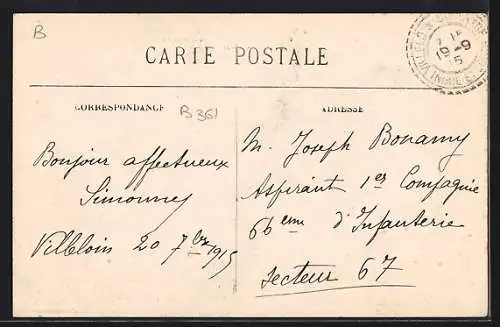 B
CARTE POSTALE
CORRESPONDANCE
B361
ADRESSE
Bonjour affectueux
Simonney
Villeloin 20 7bre 1915
M. Joseph Bonamy
Aspirant 1er Compagnie
66eme d'Infanterie
Secteur 67